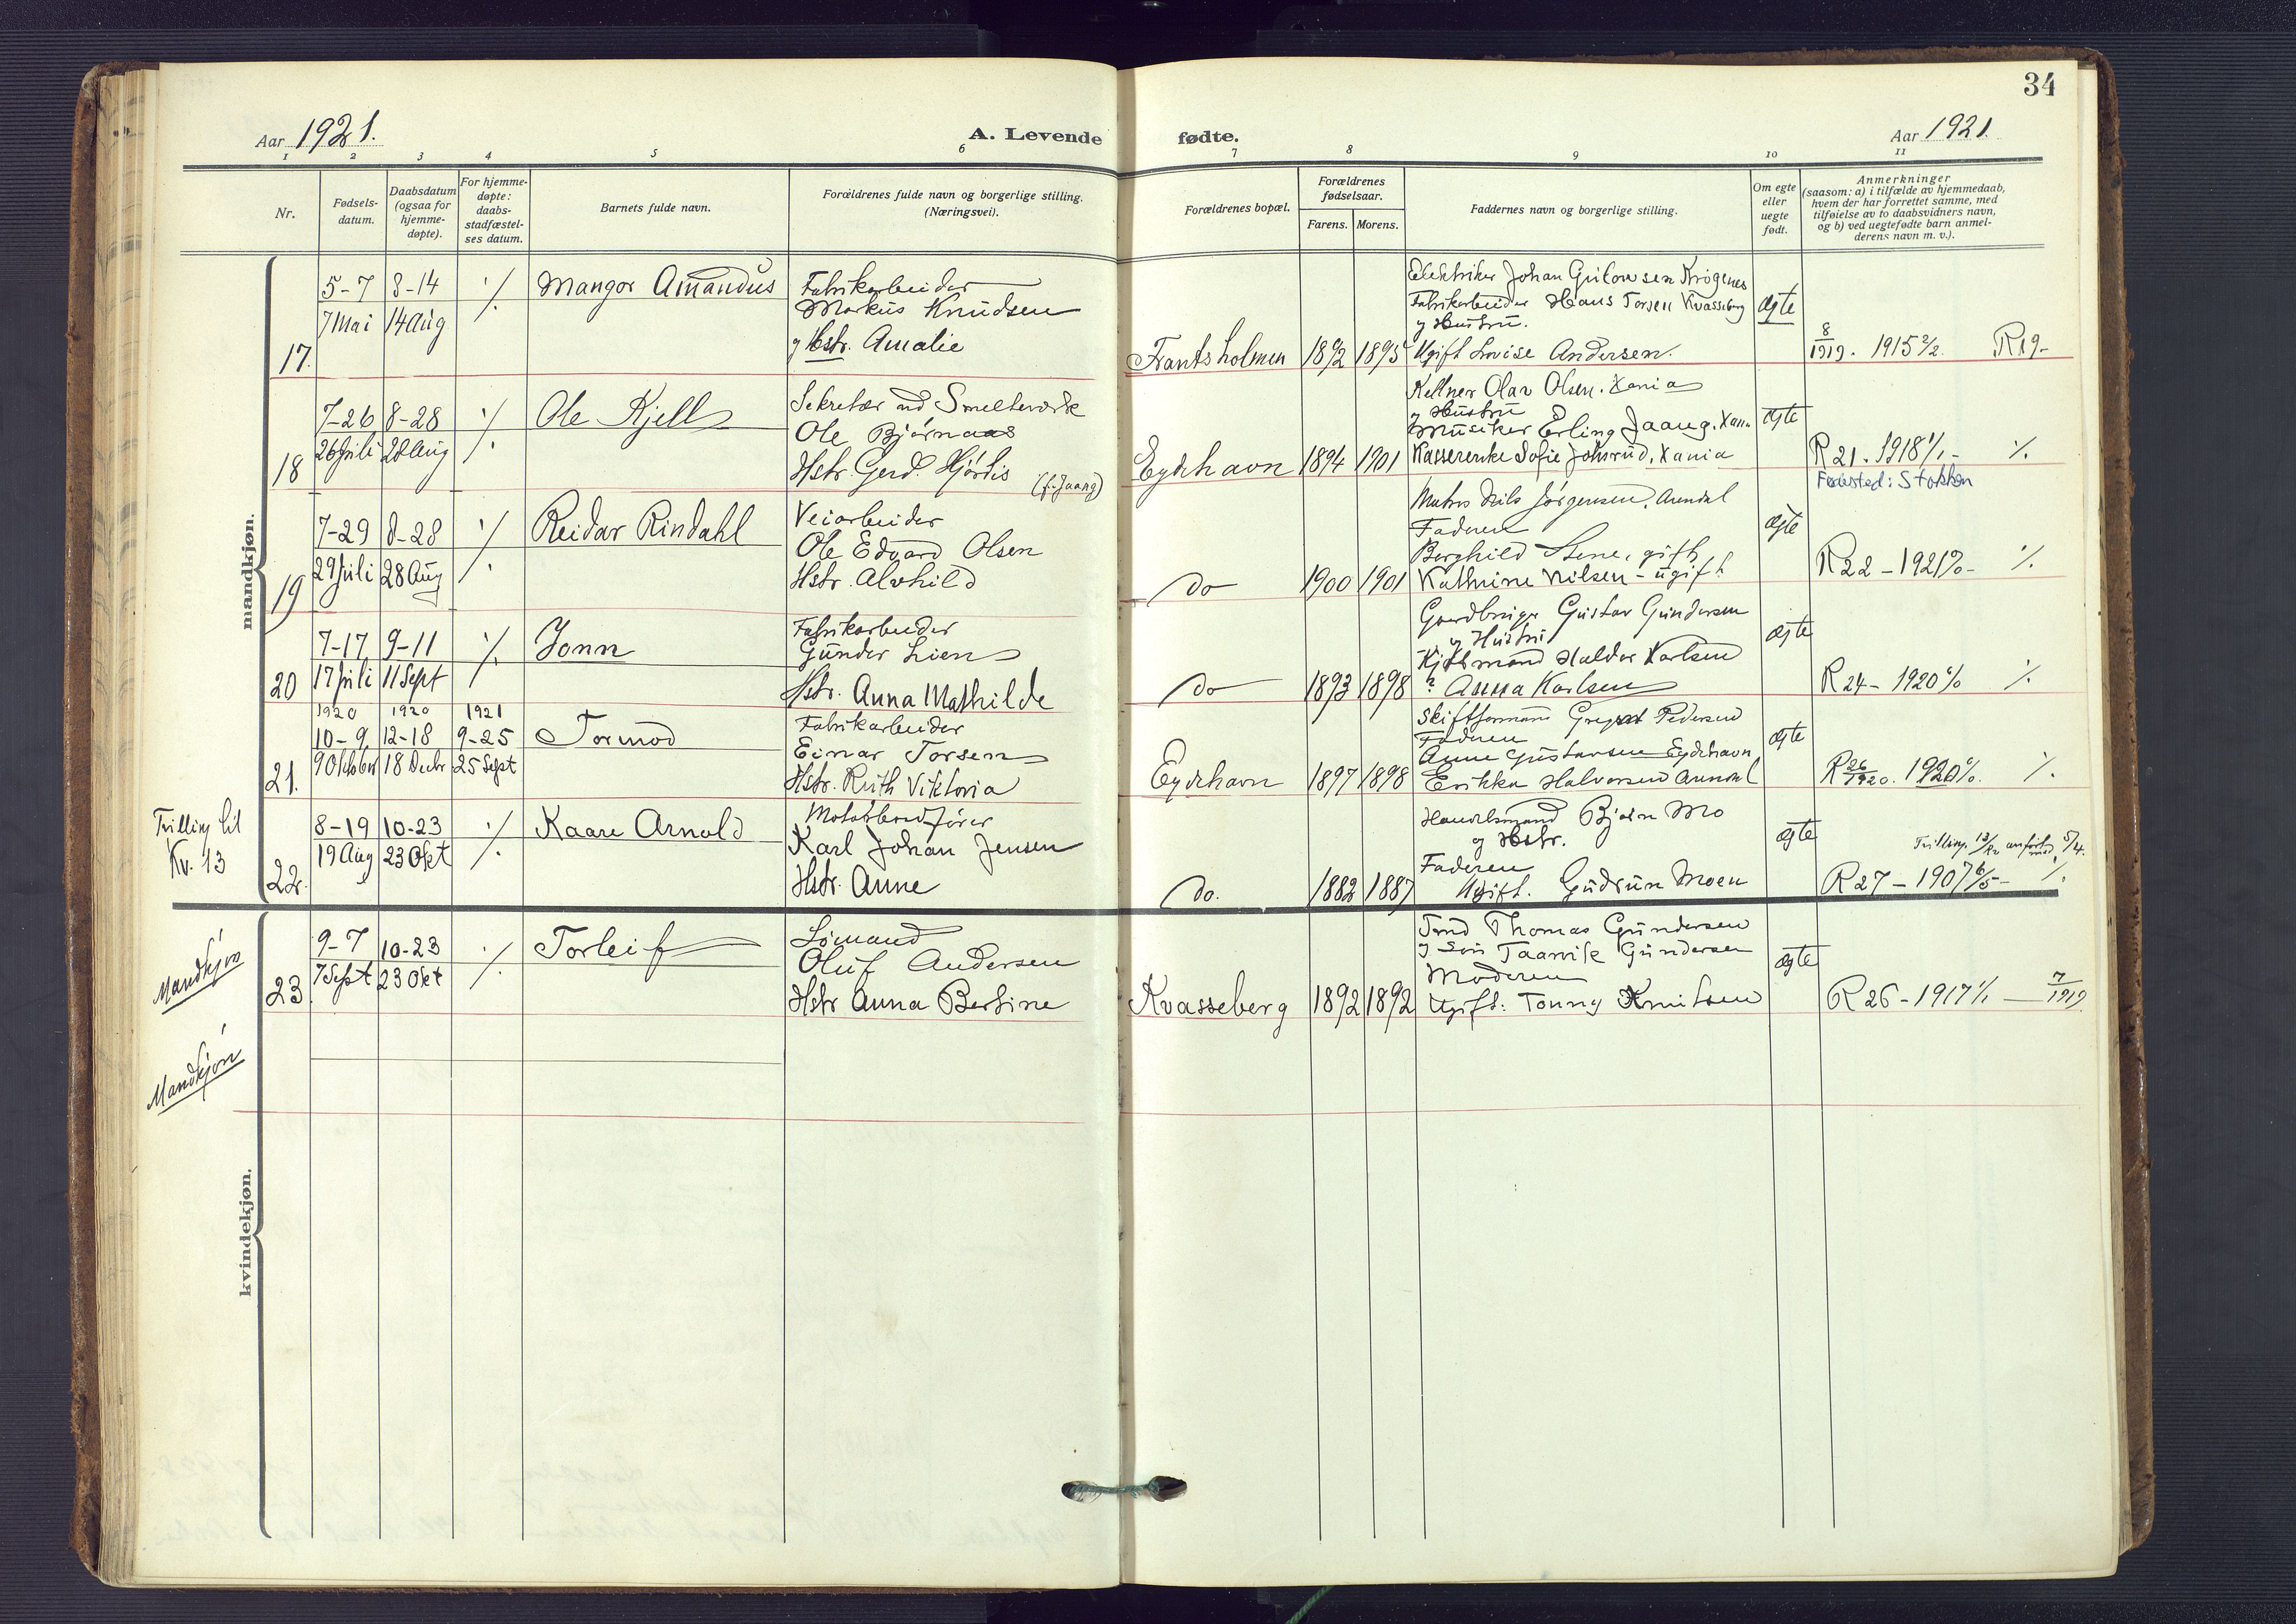 34
Aar 1921.
A. Levende fødte.
Aar 1921.
1 2 3 4 5 6 7 8 9 10 11
Nr.
Fødsels-
datum.
Daabsdatum
(ogsaa for
hjemme-
døpte).
For hjemme-
døpte:
daabs-
stadfæstel-
ses datum.
Barnets fulde navn.
Forældrenes fulde navn og borgerlige stilling.
(Næringsvei).
Forældrenes bopæl.
Forældrenes
fødselsaar.
Farens. Morens.
Faddernes navn og borgerlige stilling.
Om egte
eller
uegte
født.
Anmerkninger
(saasom: a) i tilfælde av hjemmedaab,
hvem der har forrettet samme, med
tilføielse av to daabsvidners navn,
og b) ved uegtefødte barn anmel-
derens navn m. v.).
mandkjøn.
17.
5-7 8-14 ./.
7 Mai 14 Aug
Mangor Amandus
Fabrikarbeider
Markus Knudsen
og Hstr. Amalie
Frantsholmen 1892 1895
Elektriker Johan Krøgenes
Fabrikarbeider Hans Torsen Kvasseberg
og Hustru.
Ugift Lovise Andersen.
egte
8/1919. 1915 2/2. R 19-
18
7-26 8-28 ./.
26 Juli 28 Aug
Ole Kjell
Sekretær ved Smelteverk
Ole Bjørnaas
Hstr. Gerd Hjørdis (f. Jaang)
Eydehavn 1894 1901
Kellner Olav Olsen. Xania
og Hustru
Musiker Erling Jaang. Xan.
Kassererske Sofie Johnsrud, Xania
egte
R 21. 1918 1/1- ./.
Fødested: Stokken
19
7-29 8-28 ./.
29 Juli 28 Aug
Reidar Rindahl
Veiarbeider
Ole Edvard Olsen
Hstr. Alvhild
do 1900 1901
Matros Nils Jørgensen. Arendal
Faderen
Borghild Stene, gift
Kathrine Nilsen - ugift
egte
R 22 - 1921 ./.
20
7-17 9-11 ./.
17 Juli 11 Sept
Jonn
Fabrikarbeider
Gunder Lien
Hstr. Anna Mathilde
do 1893 1898
Gaardbruger Gustav Gundersen
og Hustru
Kjøbmand Haldor Karlsen
? Anna Karlsen
egte
R 24 - 1920 ./.
21.
1920 1920 1921
10-9 12-18 9-25
9 Oktober 18 Decbr 25 Sept
Tormod
Fabrikarbeider
Einar Torsen
Hstr. Ruth Viktoria
Eydehavn 1897 1898
Skiftformann Pedersen
Faderen
Anne Gustavsen Eydehavn
Erikka Halvorsen Arendal
egte
R 26/1920. 1920 ./.
Tvilling til
Kv. 13
22.
8-19 10-23 ./.
19 Aug 23 Okt
Kaare Arnold
Karl Johan Jensen
Hstr. Anne
do. 1882 1887
Handelsmand Bjørn Mo
og Hstr.
Faderen
Ugift. Gudrun Moen
egte
Tvilling 13/Kv anført
R 27 - 1907 6/5- ./.
Mandkjøn
23.
9-7 10-23 ./.
7 Sept 23 Okt
Torleif
Sømand
Oluf Andersen
Hstr Anna Bertine
Kvasseberg 1892 1892
Tmd Thomas Gundersen
og Søn Taarvik Gundersen
Moderen
Ugift: Tonny Knutsen
egte
R 26 - 1917 1/1 - 7/1919.
Mandkjøn
kvindekjøn.